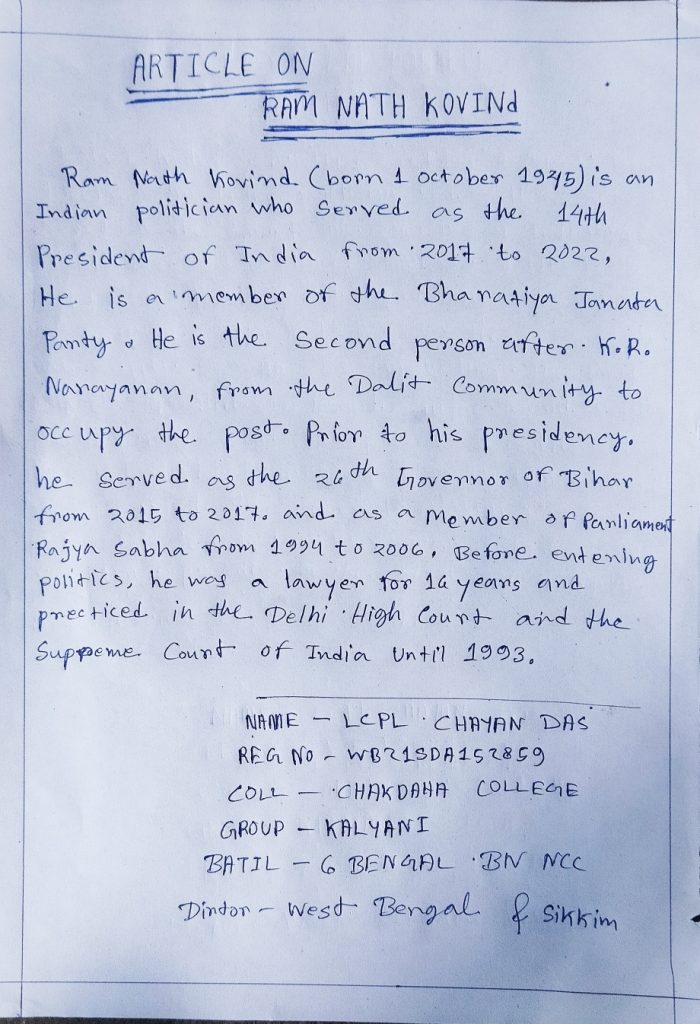 ARTICLE ON
RAM NATH KOVINd
Ram Nath Kovind (born 1 october 1945) is an
Indian politician who Served as the 14th
President of India from 2017 to 2022,
He is a member of the Bharatiya Janata
Party. He is the Second person after K.R.
Narayanan, from the Dalit Community to
occupy the post. Prior to his presidency.
he Served as the 26th Governor of Bihar
from 2015 to 2017. and as a Member of Parliament
Rajya Sabha from 1994 to 2006. Before entering
politics, he was a lawyer for 16 years and
precticed in the Delhi High Court and the
Suppeme Court of India Until 1993.
NAME - LCPL CHAYAN DAS
REG NO - WB21SDA152859
COLL - CHAKDAHA COLLEGE
GROUP - KALYANI
BATIL - 6 BENGAL BN NCC
Dirdor - West Bengal & Sikkim